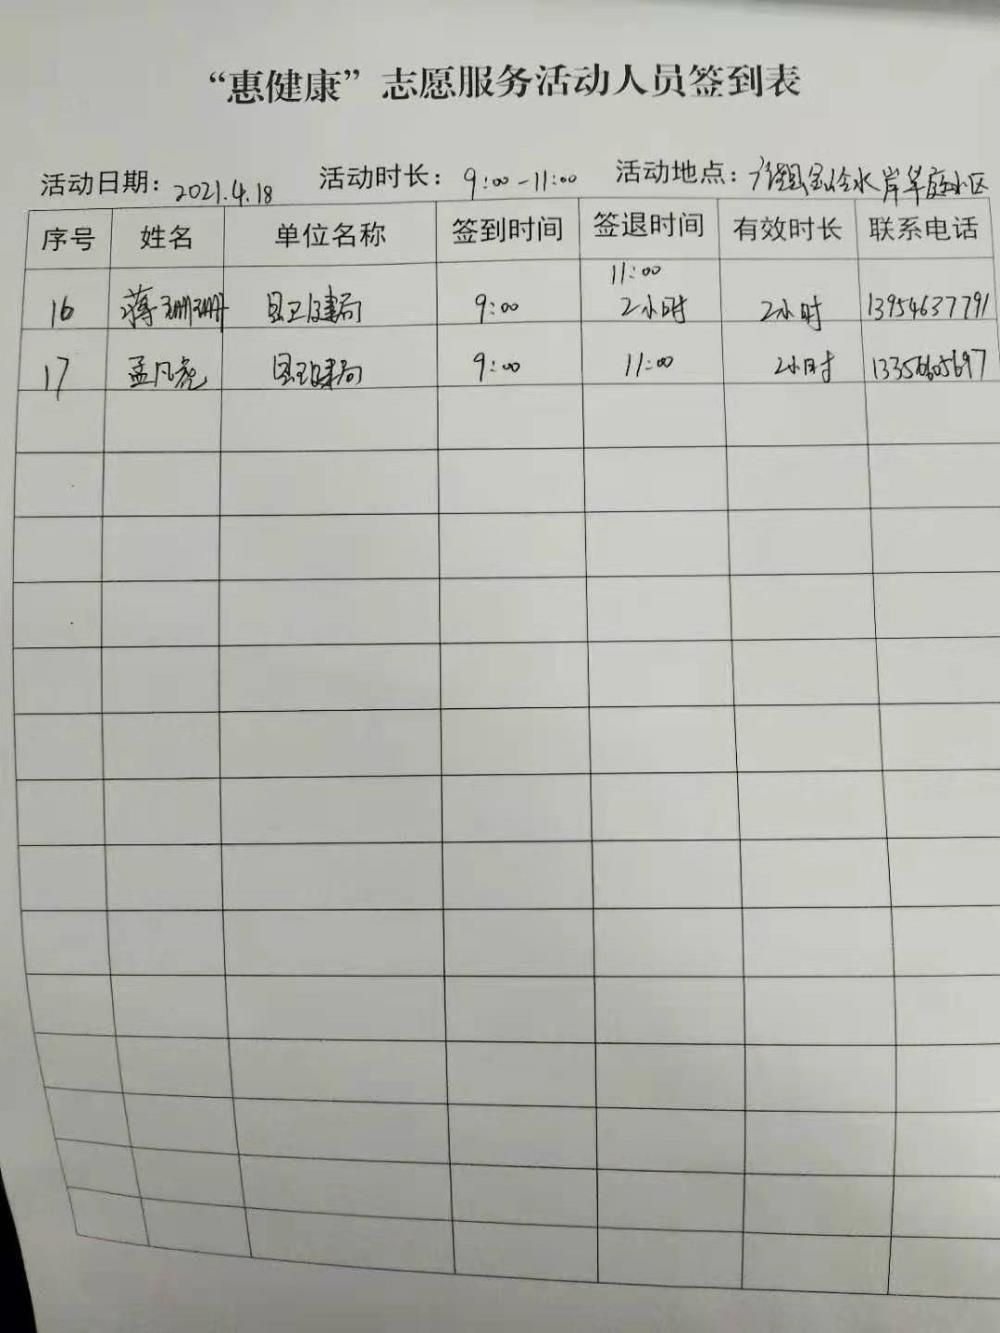 “惠健康”志愿服务活动人员签到表
活动日期：2021.4.18 活动时长：9:00-11:00 活动地点：水岸华庭小区
序号 姓名 单位名称 签到时间 签退时间 有效时长 联系电话
11:00
16 蒋珊珊 县卫健局 9:00 2小时 2小时 13954637791
17 孟凡尧 县卫健局 9:00 11:00 2小时